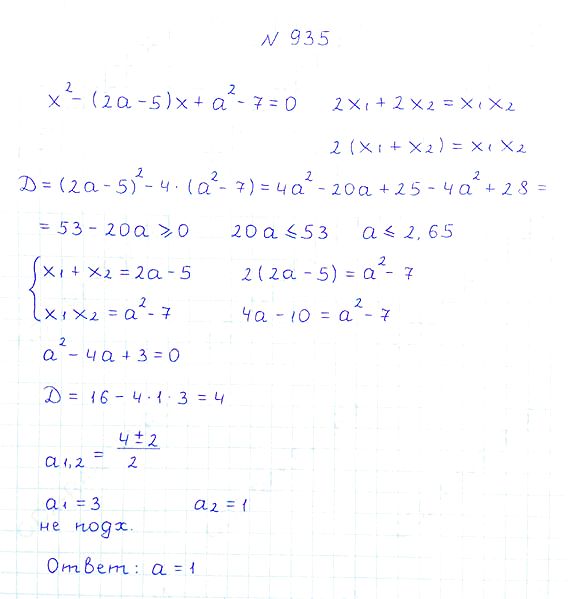 N 935
x² - (2a - 5)x + a² - 7 = 0 2x₁ + 2x₂ = x₁x₂
2(x₁ + x₂) = x₁x₂
D = (2a - 5)² - 4 · (a² - 7) = 4a² - 20a + 25 - 4a² + 28 =
= 53 - 20a ⩾ 0 20a ⩽ 53 a ⩽ 2,65
{ x₁ + x₂ = 2a - 5 2(2a - 5) = a² - 7
x₁x₂ = a² - 7 4a - 10 = a² - 7
a² - 4a + 3 = 0
D = 16 - 4 · 1 · 3 = 4
a₁,₂ = (4 ± 2)/2
a₁ = 3 a₂ = 1
не подх.
Ответ: a = 1